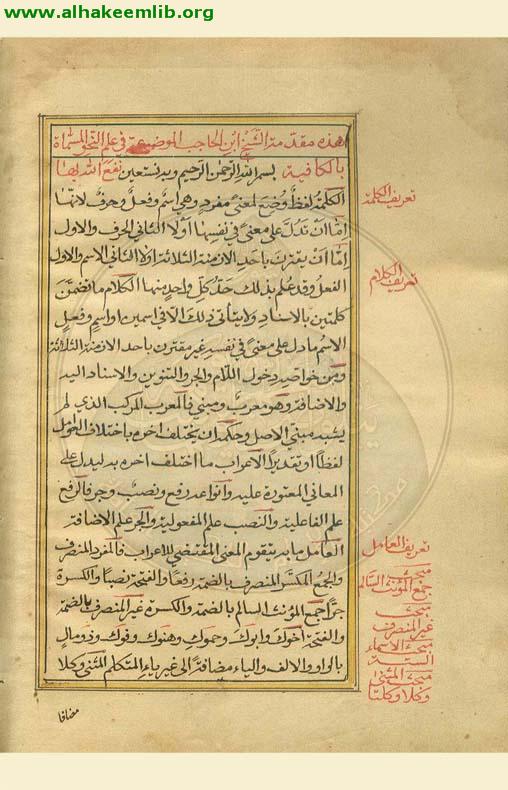 www.alhakeemlib.org
هذه مقدمة الشيخ ابن الحاجب الموضوعة في علم النحو المسماة
بالكافية نفع الله بها بسم الله الرحمن الرحيم وبه نستعين
الكلمة لفظ وضع لمعنى مفرد وهي اسم وفعل وحرف لانها
اما ان تدل على معنى في نفسها اولا الثاني الحرف والاول
اما ان يقترن باحد الازمنة الثلاثة اولا الثاني الاسم والاول
الفعل وقد علم بذلك حد كل واحد منها الكلام ما تضمن
كلمتين بالاسناد ولا يتأتى ذلك الا في اسمين او اسم وفعل
الاسم ما دل على معنى في نفسه غير مقترن باحد الازمنة الثلاثة
ومن خواصه دخول اللام والجر والتنوين والاسناد اليه
والاضافة وهو معرب ومبني فالمعرب المركب الذي لم
يشبه مبني الاصل وحكمه ان يختلف اخره باختلاف العوامل
لفظا او تقديرا الاعراب ما اختلف اخره به ليدل على
المعاني المعتورة عليه وانواعه رفع ونصب وجر فالرفع
علم الفاعلية والنصب علم المفعولية والجر علم الاضافة
العامل ما به يتقوم المعنى المقتضي للاعراب فالمفرد المنصرف
والجمع المكسر المنصرف بالضمة رفعا والفتحة نصبا والكسرة
جرا جمع المؤنث السالم بالضمة والكسرة غير المنصرف بالضمة
والفتحة اخوك وابوك وحموك وهنوك وفوك وذو مال
بالواو والالف والياء مضافة الى غير ياء المتكلم المثنى وكلا
مضافا
تعريف الكلمة
تعريف الكلام
تعريف العامل
مبحث
جمع المؤنث السالم
مبحث
غير المنصرف
مبحث الاسماء
الستة
مبحث المثنى
وكلا وكلتا